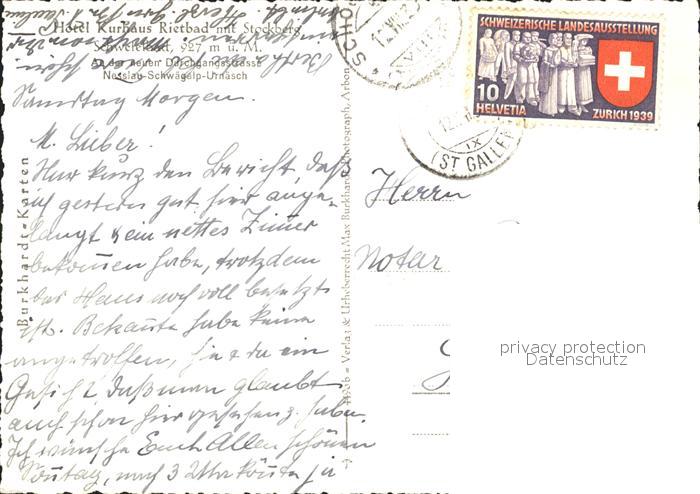 Hôtel Kurhaus Rietbad mit Stockberg
927 m ü. M.
An der neuen Durchgangsstrasse
Nesslau-Schwägalp-Urnäsch
Samstag Morgen.
M. Lieber!
Nur kurz den Bericht, daß
ich gestern gut hier ange-
langt & ein nettes Zimmer
bekommen habe, trotzdem
das Haus noch voll besetzt
ist. Bekannte habe keine
angetroffen, hie & da ein
Gesicht, daß man glaubt
auch schon hier gesehen z. haben.
Ich wünsche Euch Allen schönen
Sonntag, nach 3 Uhr könnte ja
Burkhardt-Karten
Verlag & Urheberrecht Max Burkhardt, Photograph, Arbon
SCHWEIZERISCHE LANDESAUSSTELLUNG
10
HELVETIA
ZURICH 1939
IX
(ST GALLEN)
Herrn
Notar
privacy protection
Datenschutz